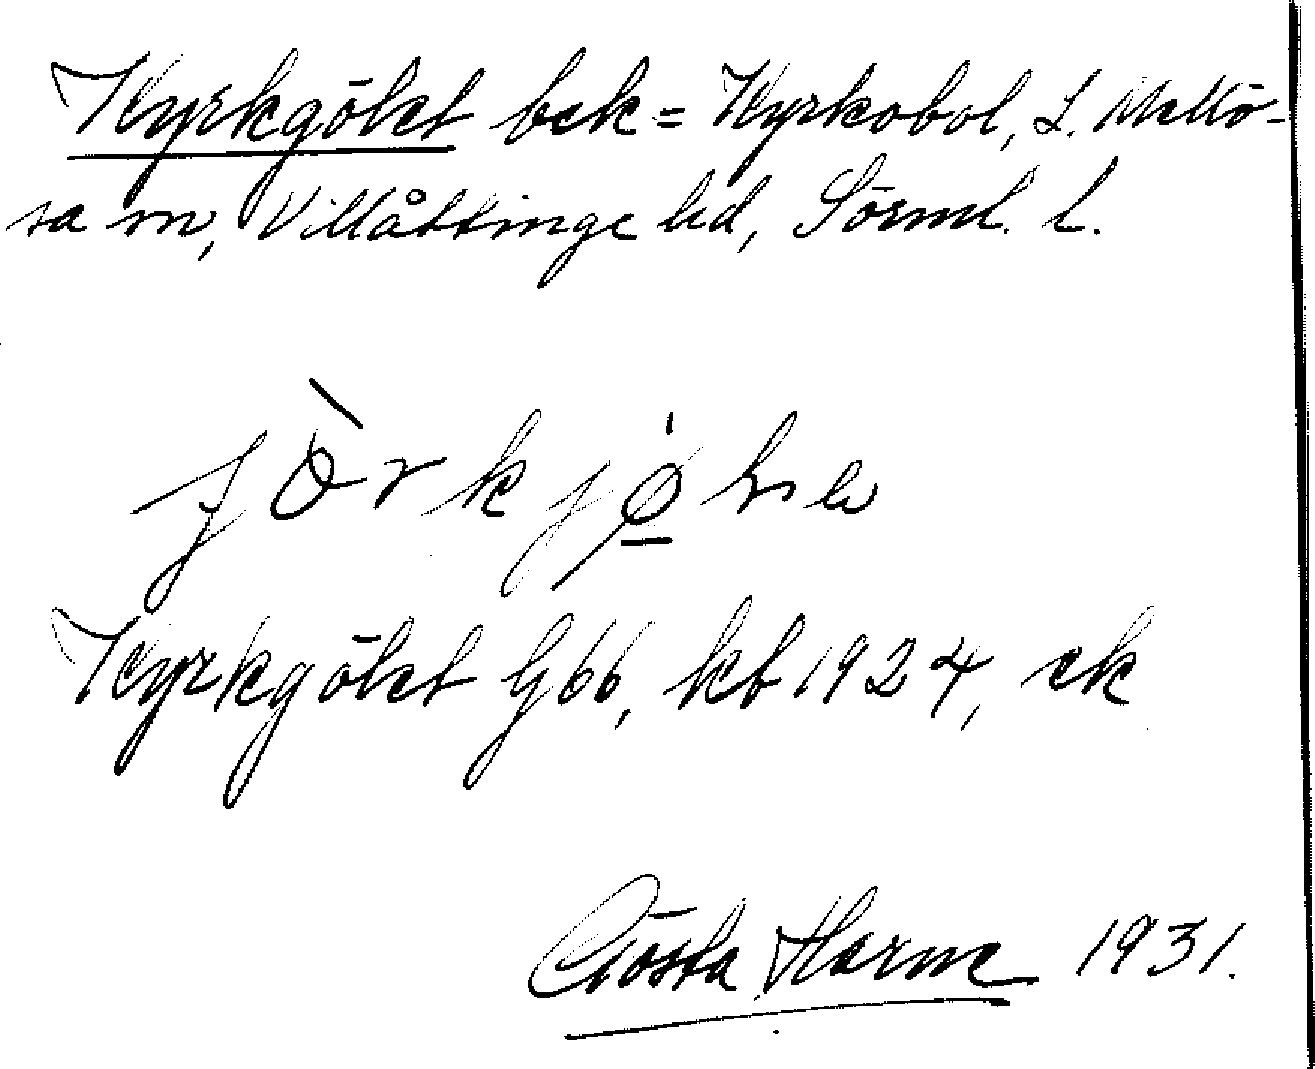 Kyrkgölet bek = Kyrkobol, L. Mellö-
sa sn, Villåttinge hd, Sörml. l.
Kyrkgölet G66, kb 1924, ek
Gösta Harne 1931.